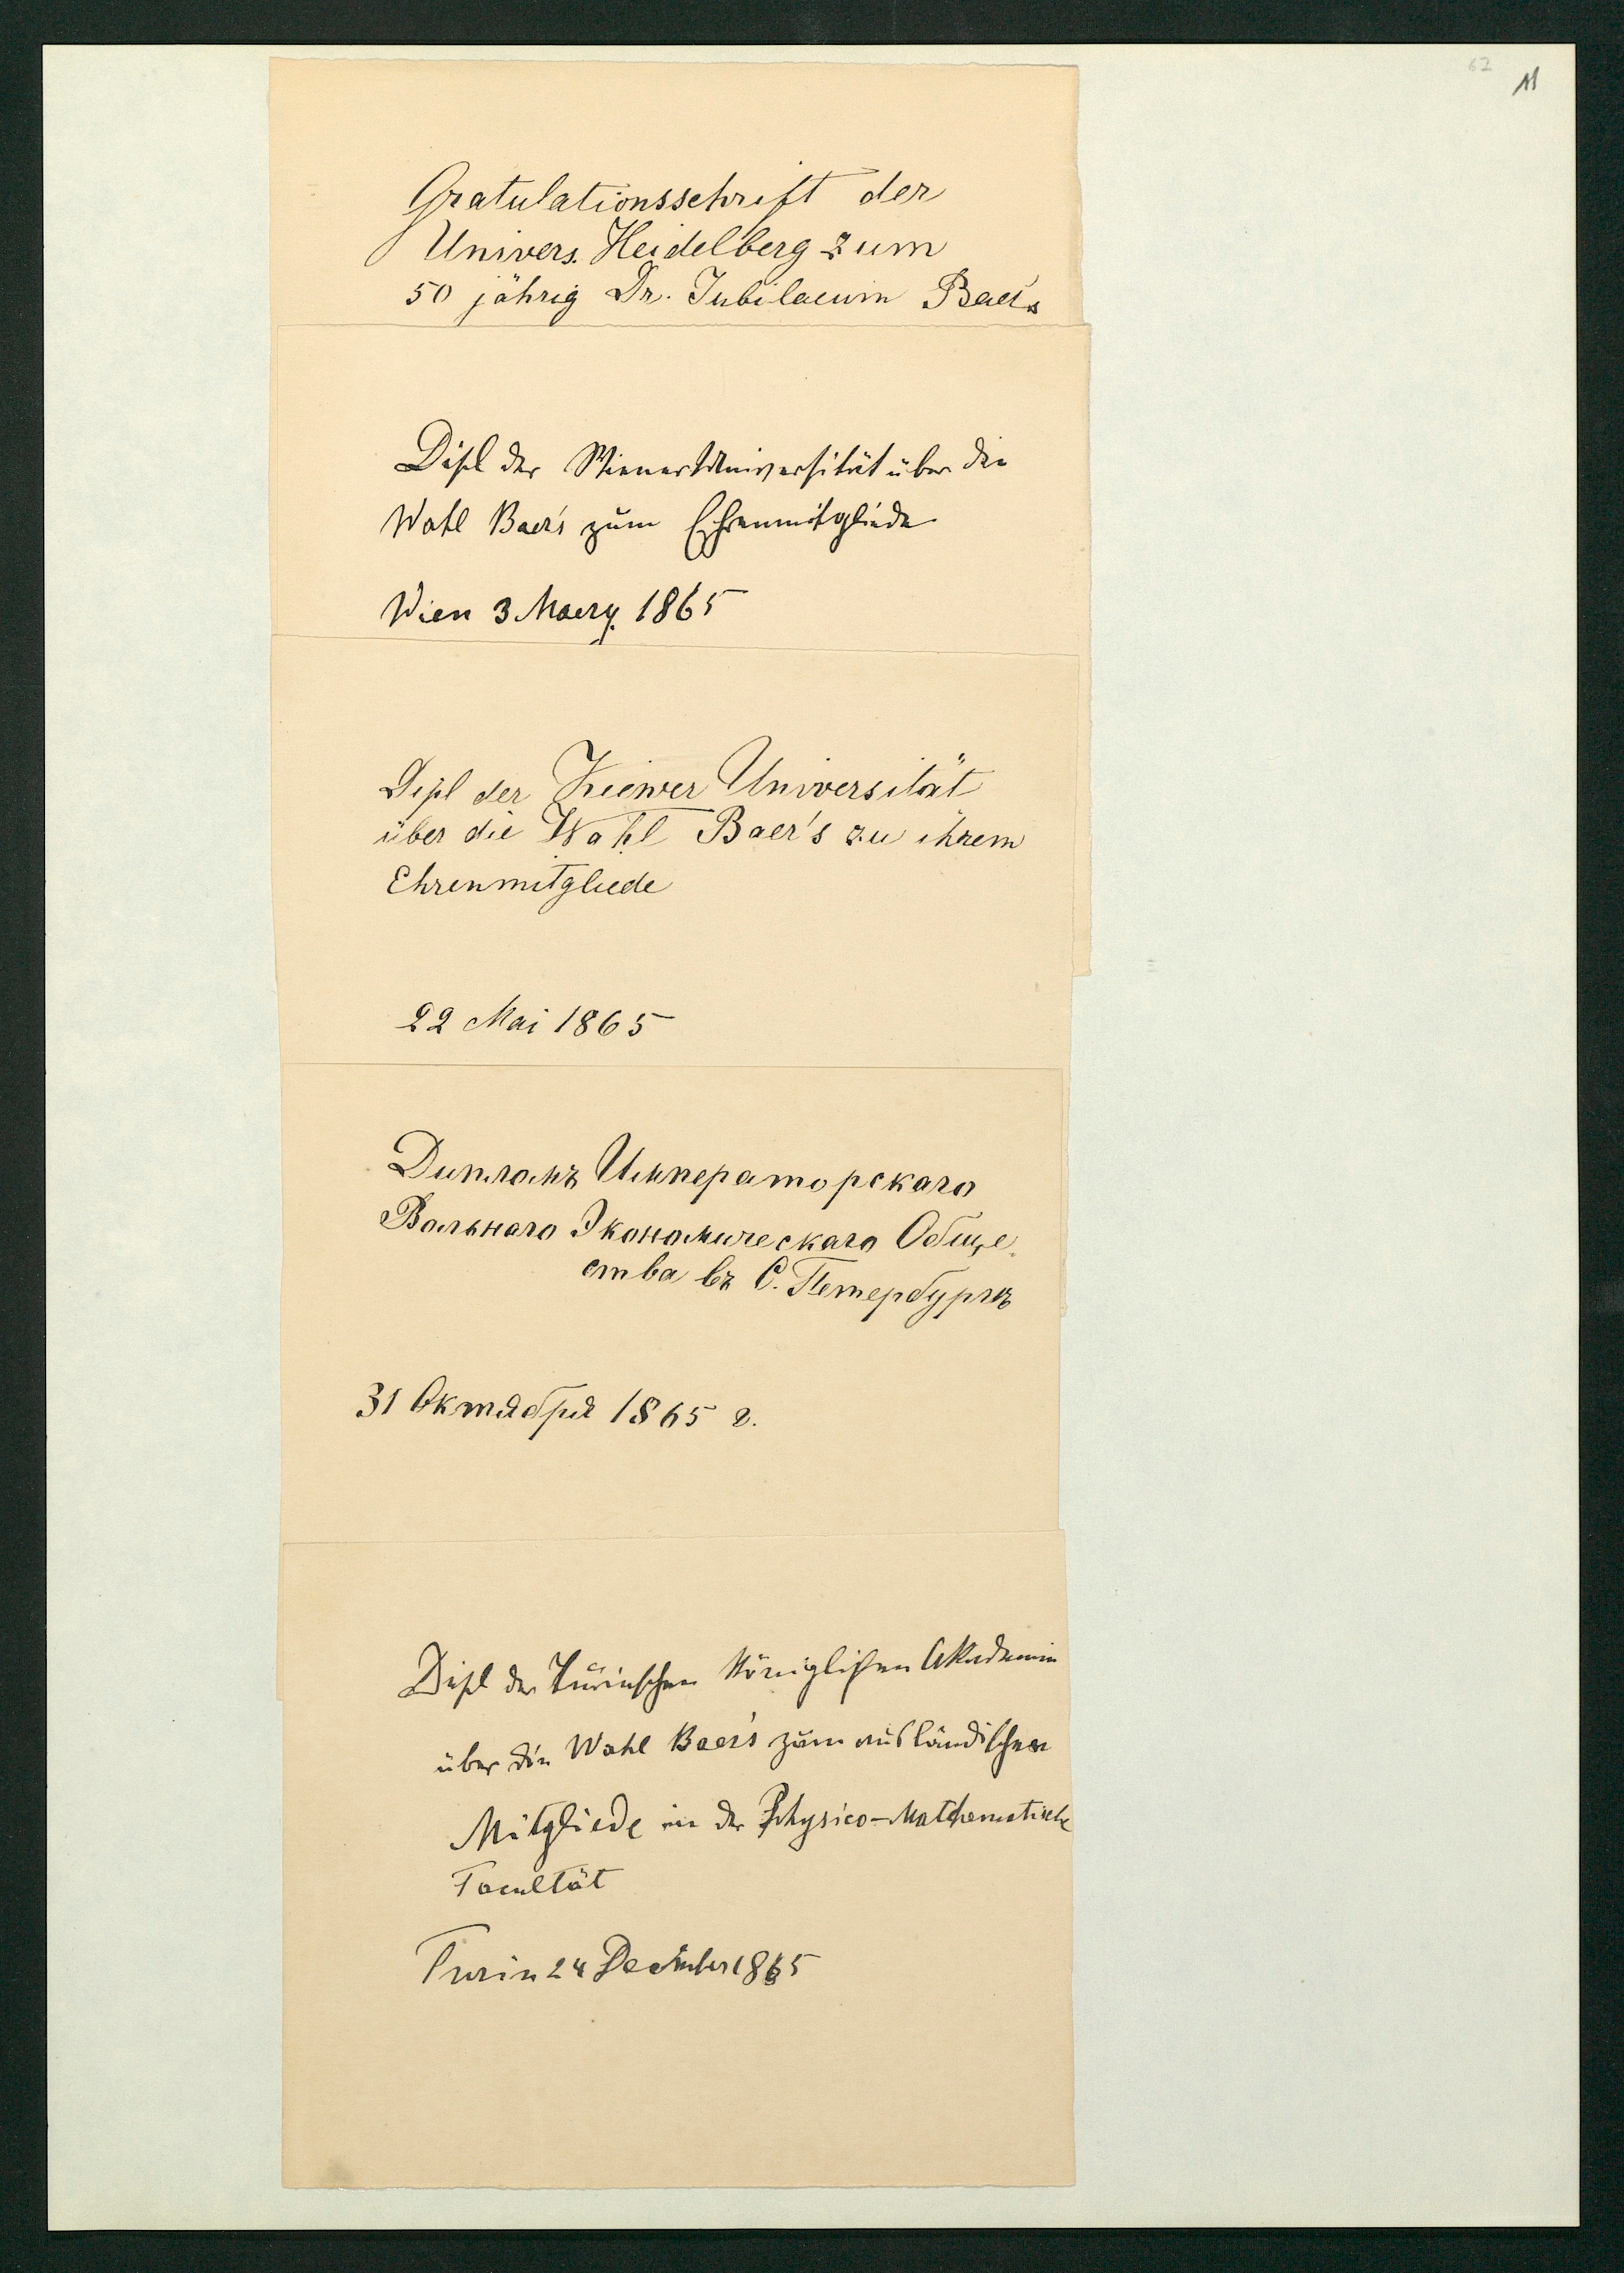 62
11
Gratulationsschrift der
Univers. Heidelberg zum
50 jährig Dr. Jubilaeum Baer's
Dipl der Wiener Universität über die
Wahl Baer's zum Ehrenmitgliede
Wien 3 Maerz. 1865
Dipl der Kiewer Universität
über die Wahl Baer's zu ihrem
Ehrenmitgliede
22 Mai 1865
Дипломъ Императорскаго
Вольнаго Экономическаго Обще-
ства въ С. Петербургѣ
31 Октября 1865 г.
Dipl der Turinschen Königlichen Akademie
über die Wahl Baer's zum ausländischen
Mitgliede in der Physico-Mathematische
Facultät
Turin 24 December 1865